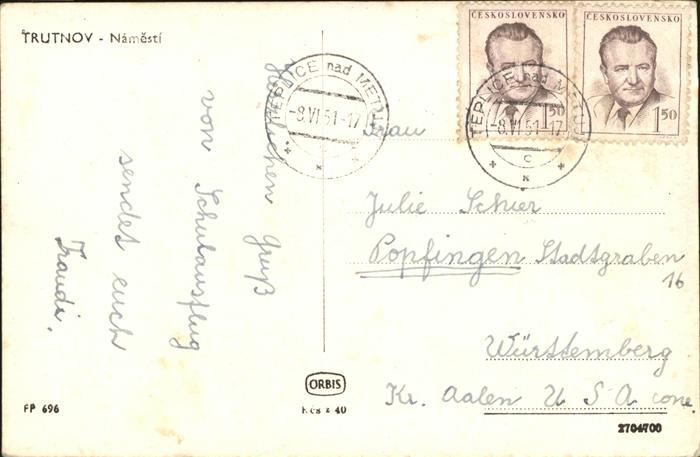 TRUTNOV - Náměstí
Herzlichen Gruß
von Schulausflug
sendet euch
Traudi.
ČESKOSLOVENSKO
1 50
ČESKOSLOVENSKO
1 50
TEPLICE nad METUJÍ
-8.VI.51-17
TEPLICE nad METUJÍ
-8.VI.51-17
C
Frau
Julie Schier
Popfingen Stadtgraben
16
Württemberg
Kr. Aalen U S A cone.
ORBIS
FP 696
Kčs 2 40
2704700